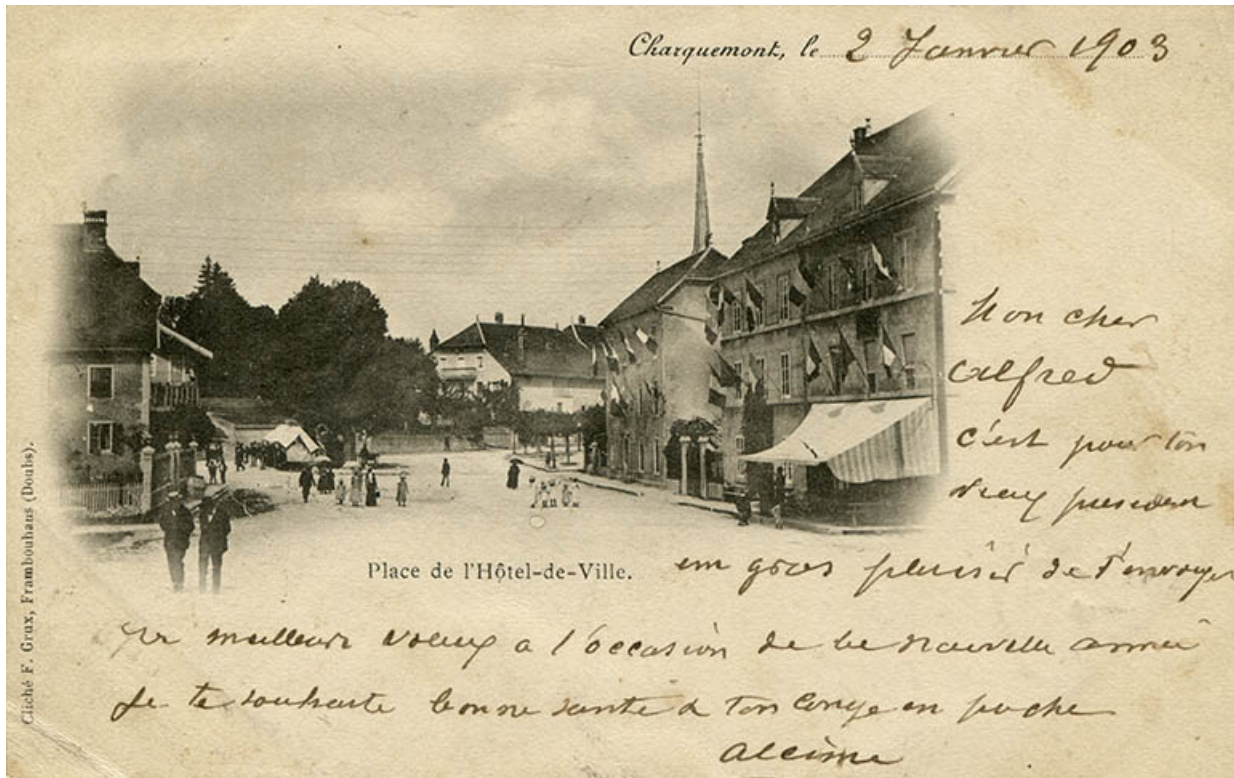 Charquemont, le 2 Janvier 1903
Mon cher
Alfred
c'est pour ton
vieux
Place de l'Hôtel-de-Ville.
un gros plaisir de t'envoyer
meilleurs voeux a l'occasion de la nouvelle année
Je te souhaite bonne santé & ton conge en poche
Alcime
Cliché F. Grux, Frambouhans (Doubs).